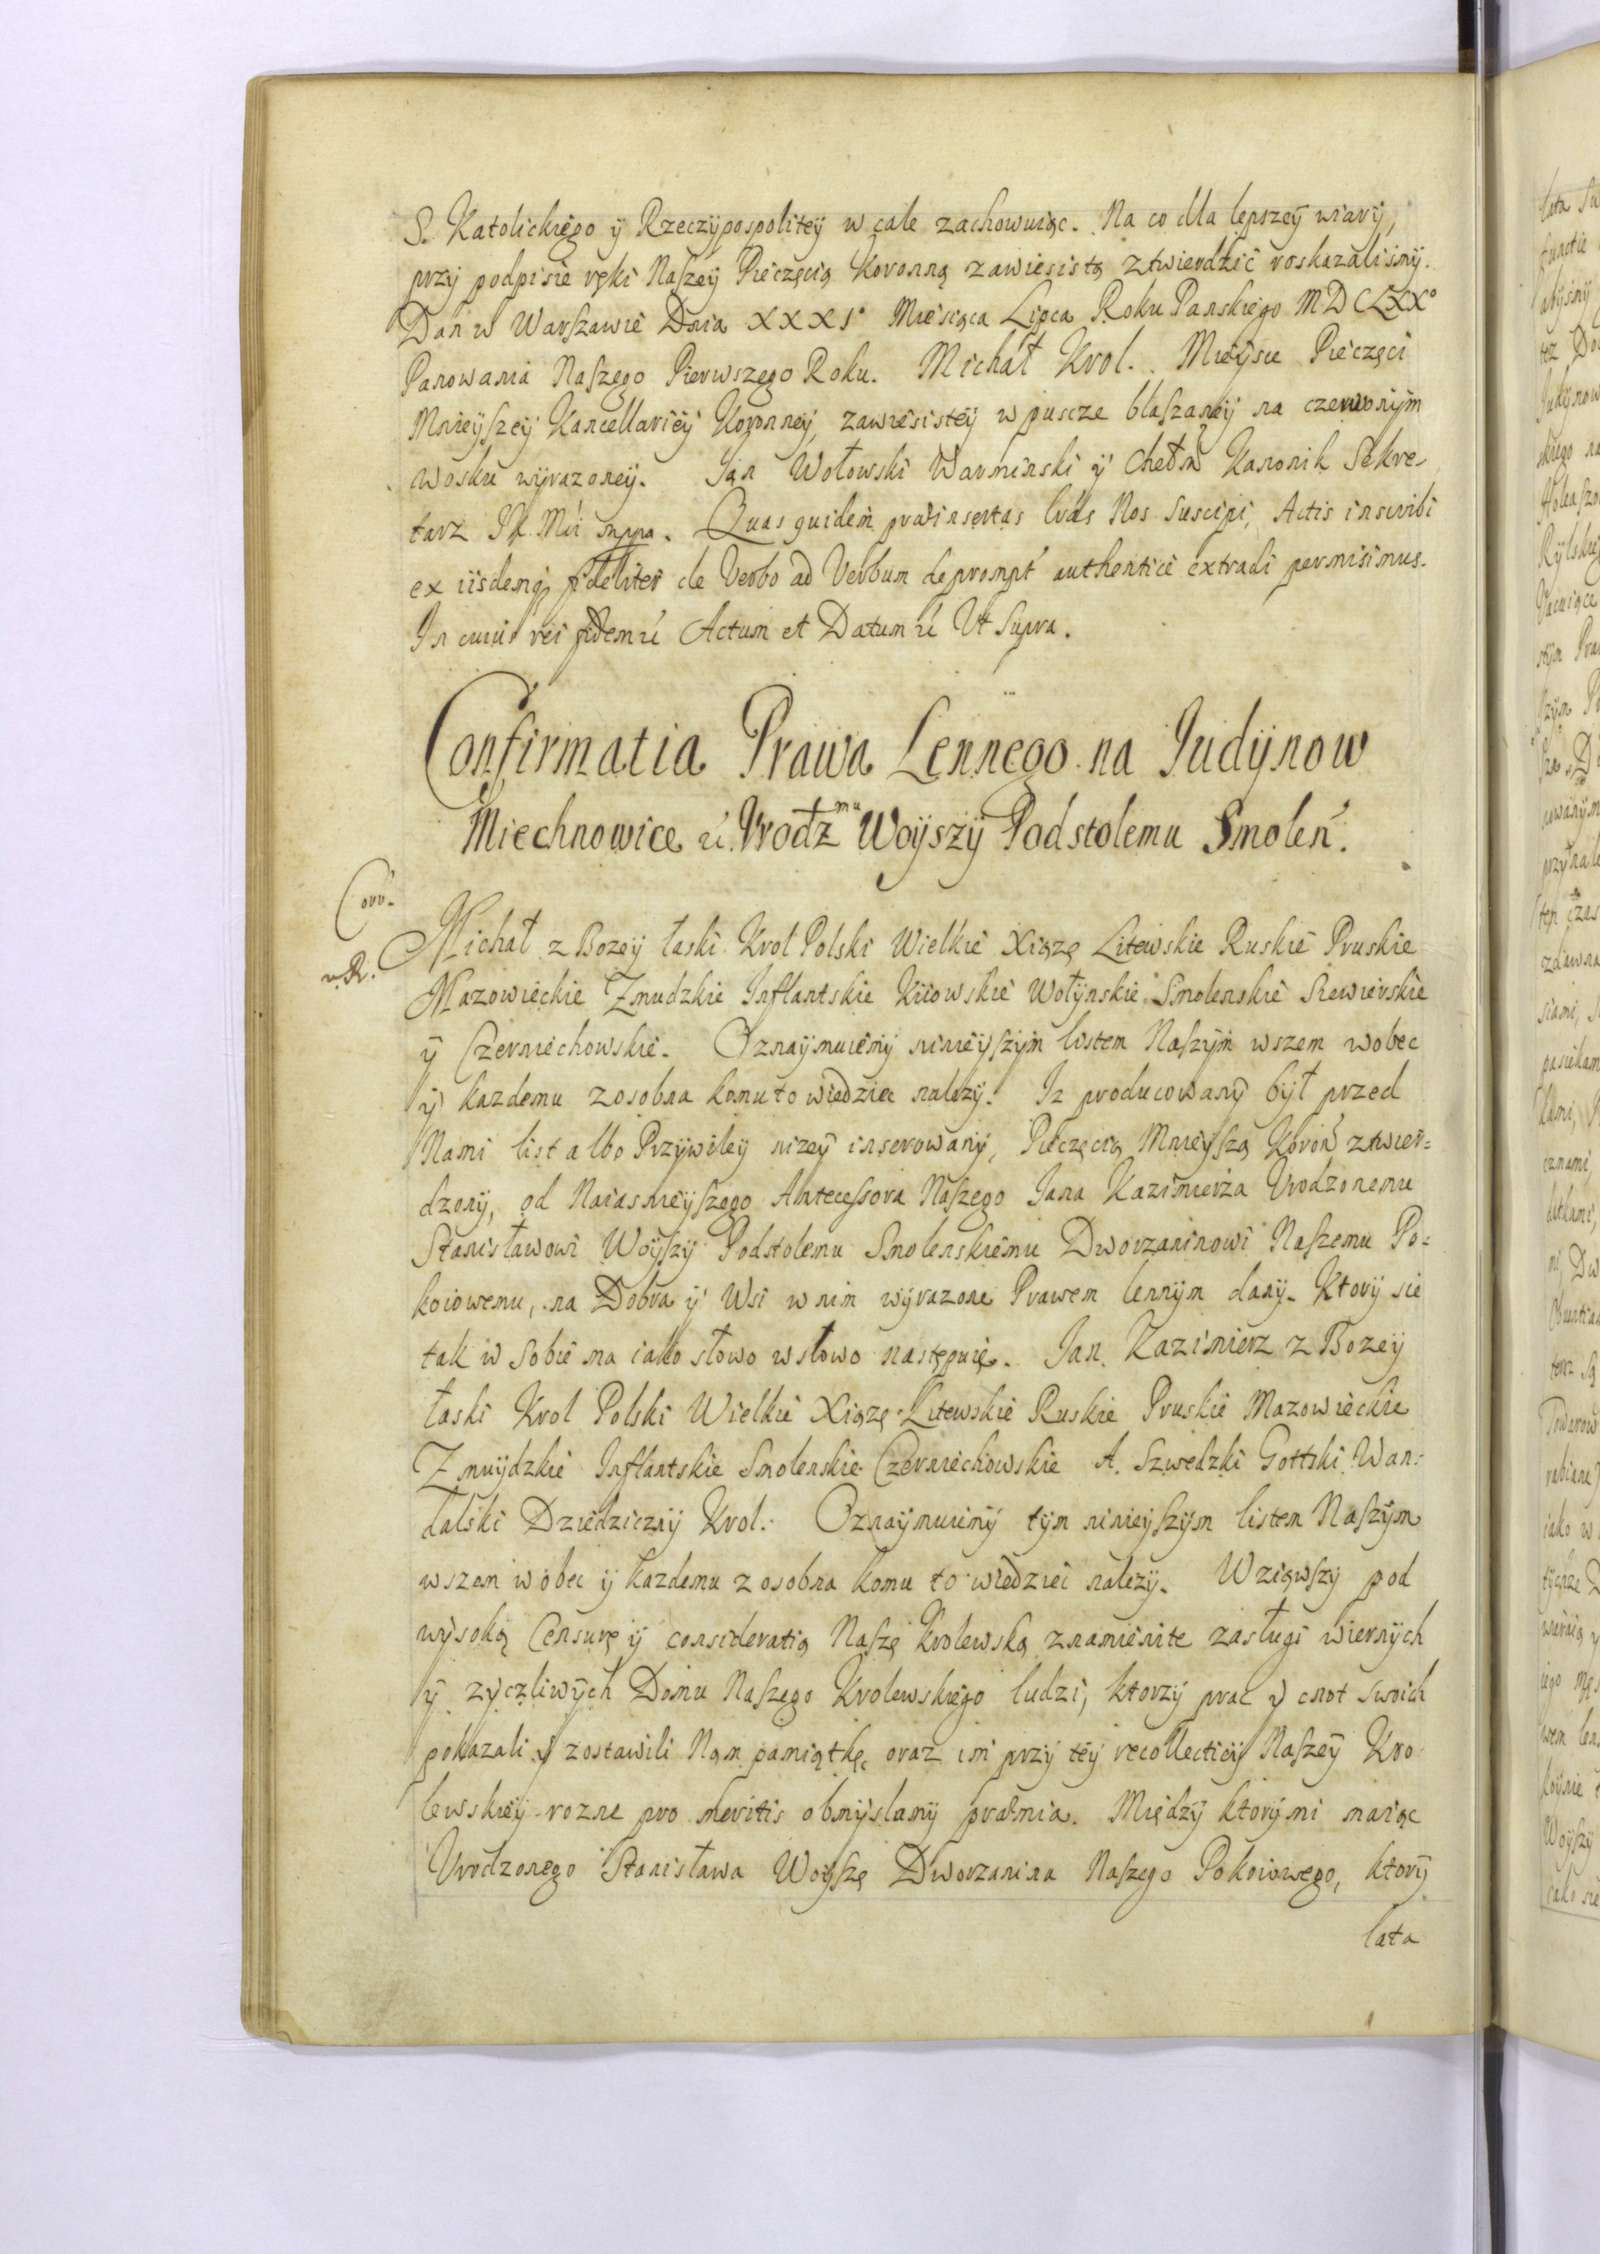 S. Katolickiego ÿ Rzeczÿpospolitey w cale zachowuiąc. Na co dla lepszeÿ wiary,
przy podpisie ręki Naszeÿ Pieczęcią Koronną zawiesistą ztwierdzić roskazalismÿ.
Dan w Warszawie Dnia XXXI° Miesiąca Lipca Roku Panskiego MDCLXX°
Panowania Naszego Pierwszego Roku. Michał Krol. Mieÿsce Pieczęci
Mnieÿszeÿ Kancellarieÿ Koronneÿ, zawiesisteÿ w puscze blaszaneÿ na czerwonÿm
wosku wÿrazoneÿ. Jan Wołowski Warminski ÿ Chełm Kanonik Sekre-
tarz mppa. Quas quidem præinsertas lras Nos suscipi, Actis inscribi
ex iisdemq fideliter de Verbo ad Verbum deprompt authentice extradi permisimus.
In cuius rei fidem Actum et Datum Ut Supra.
Confirmatia Prawa Lennego na Judÿnow
Miechnowice Vrodz mu Woÿszÿ Podstolemu Smolen.
Corr.
Michał z Bozeÿ łaski Krol Polski Wielkie Xiążę Litewskie Ruskie Pruskie
Mazowieckie Zmudzkie Inflantskie Kiiowskie Wołÿnskie Smolenskie Siewierskie
ÿ Czerniechowskie. Oznaÿmuiemÿ ninieÿszÿm listem Naszÿm wszem wobec
ÿ kazdemu zosobna komu to wiedziec nalezÿ. Iz producowanÿ bÿł przed
Nami list albo Przÿwileÿ nizeÿ inserowanÿ, Pieczęcią Mnieÿszą Koron ztwier=
dzonÿ, od Naiasnieÿszego Antecessora Naszego Jana Kazimierza Vrodzonemu
Stanisławowi Woÿszÿ Podstolemu Smolenskiemu Dworzaninowi Naszemu Po=
koiowemu, na Dobra ÿ Wsi w nim wÿrazone Prawem lennÿm danÿ. Ktorÿ sie
tak w sobie ma iako słowo wsłowo następuię. Jan Kazimierz z Bozeÿ
łaski Krol Polski Wielkie Xiążę Litewskie Ruskie Pruskie Mazowieckie
Zmuÿdzkie Inflantskie Smolenskie Czerniechowskie A. Szwedzki Gottski Wan=
dalski Dziedzicznÿ Krol. Oznaÿmuiemÿ tÿm ninieÿszÿm listem Naszÿm
wszem wobec ÿ kazdemu zosobna komu to wiedziec nalezÿ. Wziąwszy pod
wÿsoką Censurę ÿ consideratią Naszę Krolewską znamienite zasługi wiernÿch
ÿ zÿczliwÿch Domu Naszego Krolewskiego ludzi, ktorzÿ prac ÿ cnot swoich
pokazali ÿ zostawili Nam pamiątkę, oraz im przÿ teÿ recollecticÿ Naszeÿ Kro
lewskieÿ rozne pro meritis obmÿslamÿ præmia. Międzÿ ktorÿmi maiąc
Vrodzonego Stanisława Woÿszę Dworzanina Naszego Pokoiowego, ktorÿ
lata